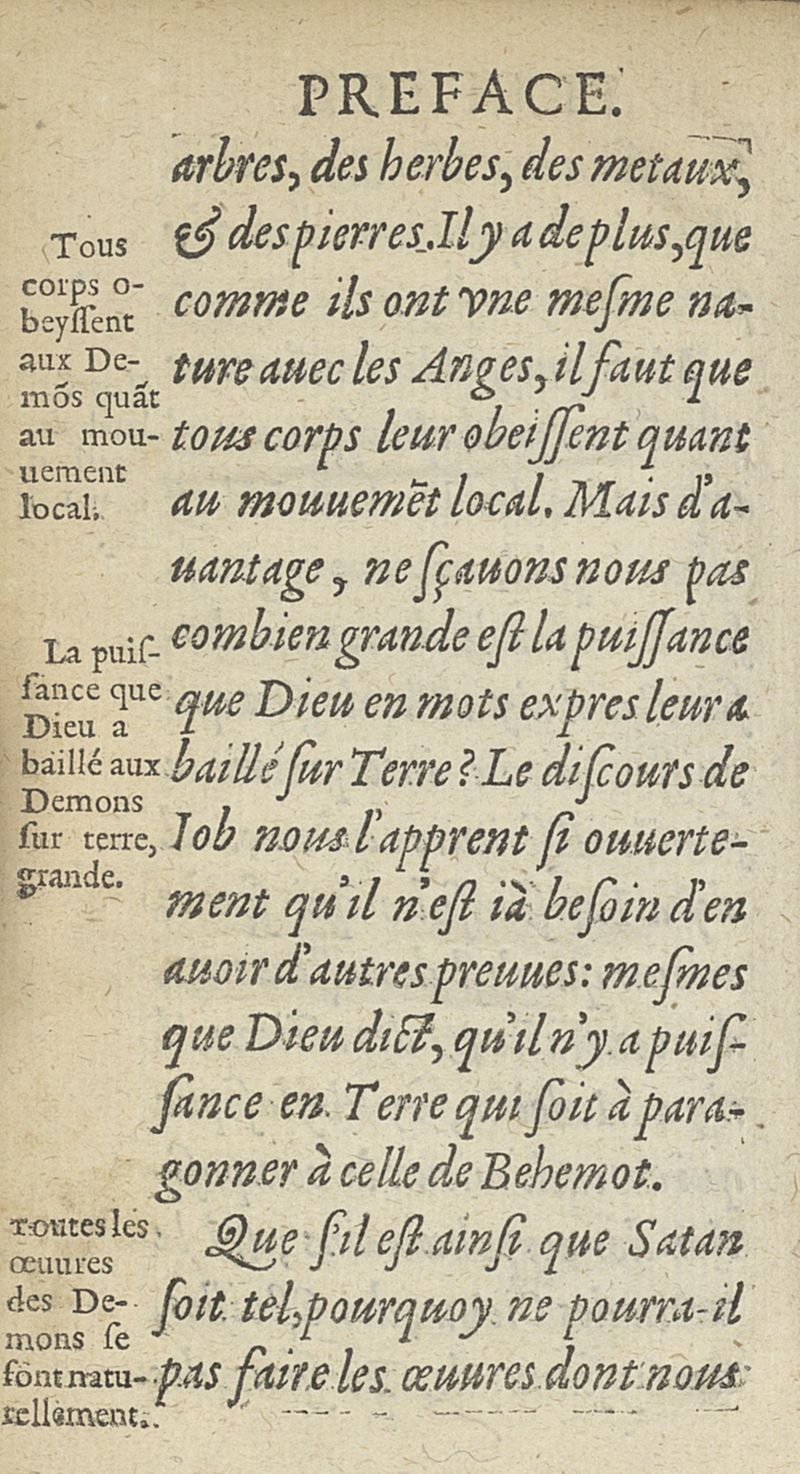 PREFACE.
arbres, des herbes, des metaux,
& des pierres. Il y a de plus, que
comme ils ont vne meſme na-
ture auec les Anges, il faut que
tous corps leur obeiſſent quant
au mouuemēt local. Mais d'a-
uantage, ne ſçauons nous pas
combien grande eſt la puiſſance
que Dieu en mots expres leur a
baillé ſur Terre? Le diſcours de
Iob nous l'apprent ſi ouuerte-
ment qu'il n'eſt ià beſoin d'en
auoir d'autres preuues: meſmes
que Dieu dict, qu'il n'y a puiſ-
ſance en Terre qui ſoit à para-
gonner à celle de Behemot.
Que ſ'il eſt ainſi que Satan
ſoit tel, pourquoy ne pourra-il
pas faire les œuures dont nous
Tous
corps o-
beyſſent
aux De-
mōs quāt
au mou-
uement
local.
La puiſ-
ſance que
Dieu a
baillé aux
Demons
ſur terre,
grande.
Toutes les
œuures
des De-
mons ſe
fōnt natu-
rellement.